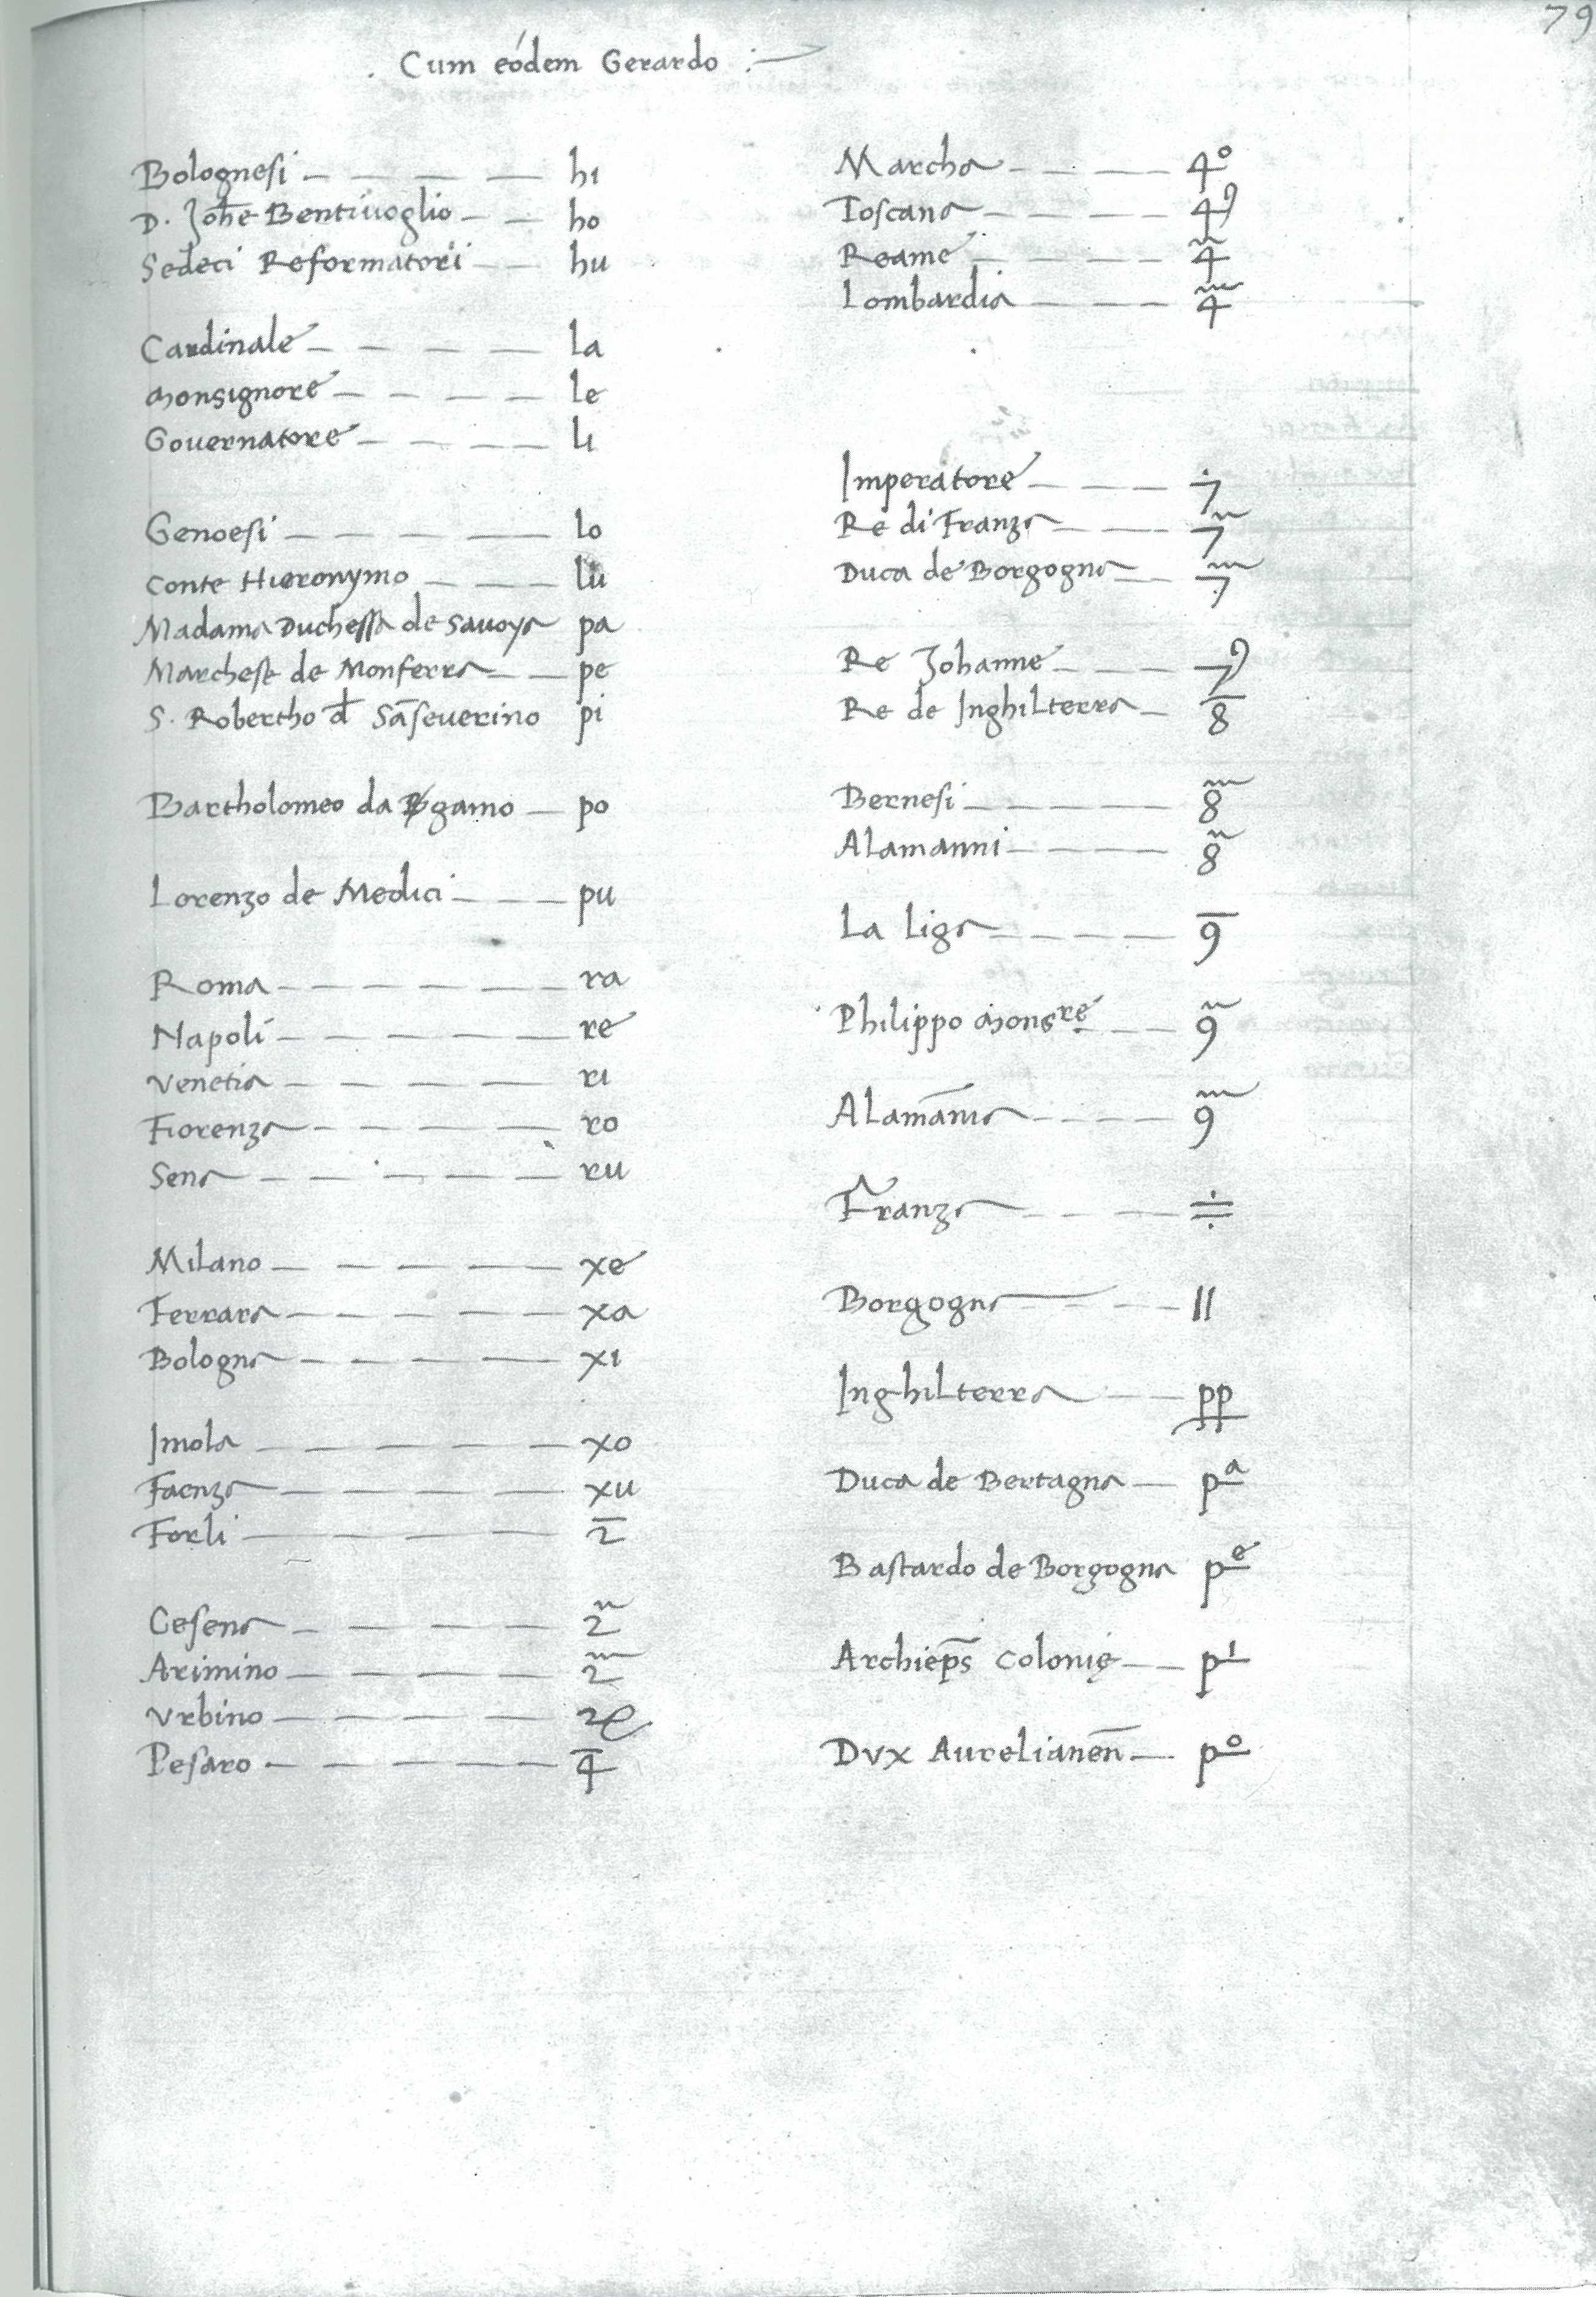 79
Cum eódem Gerardo :—
Bolognesi — — — — hi
D. Joh̄e Bentiuoglio — — ho
Sedeci Reformatori — — hu
Cardinale — — — — la
Monsignore — — — — le
Gouernatore — — — — li
Genoesi — — — — lo
Conte Hieronymo — — — lu
Madama Duchessa de Sauoya pa
Marchese de Monferra — — pe
S. Robertho d̄ Sāseuerino pi
Bartholomeo da Bgamo — po
Lorenzo de Medici — — — pu
Roma — — — — — ra
Napoli — — — — — re
Venetia — — — — — ri
Fiorenza — — — — — ro
Sena — — — — — ru
Milano — — — — — xe
Ferrara — — — — — xa
Bologna — — — — — xi
Imola — — — — — xo
Faenza — — — — — xu
Forli — — — — 2̄
Cesena — — — — 2ⁿ
Arimino — — — — 2ᵐ
Vrbino — — — —
Pesaro — — — — 4̄
Marcha — — — — 4°
Toscana — — — — 4⁹
Reame — — — — 4ⁿ
Lombardia — — — 4ᵐ
Imperatore — — — 7̇
Re di Franza — — — 7ⁿ
Duca de Borgogna — — 7ᵐ
Re Johanne — — — 7⁹
Re de Inghilterra — 8̄
Bernesi — — — — 8ᵐ
Alamanni — — — — 8ⁿ
La Liga — — — — 9̄
Philippo Monsʳᵉ — — 9ⁿ
Alamānia — — — 9ᵐ
Franza — — — ≑
Borgogna — — — 11
Inghilterra — — pp
Duca de Bertagna — pᵃ
Bastardo de Borgogna pᵉ
Archiep̄s Colonię — — pⁱ
Dvx Aurelianen̄ — pᵒ